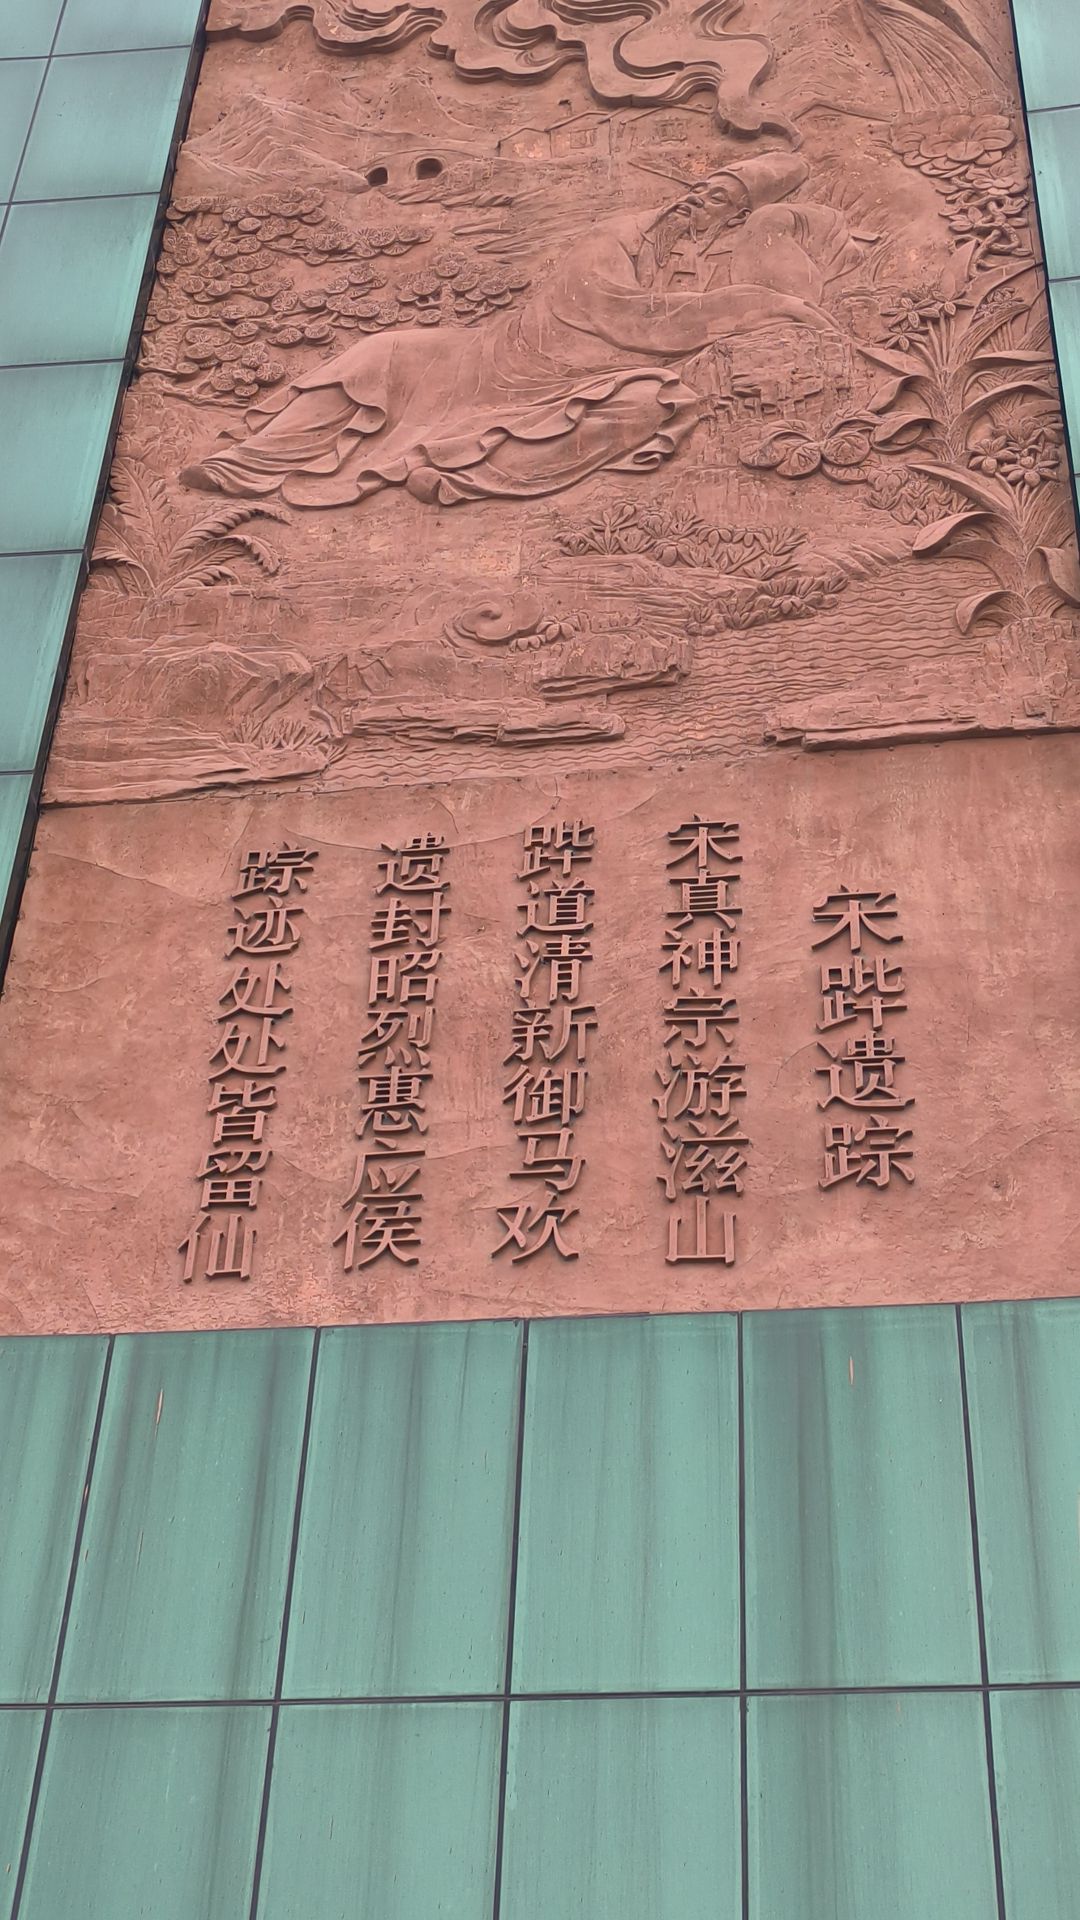 宋跸遗踪
宋真神宗游滋山
跸道清新御马欢
遗封昭烈惠应侯
踪迹处处皆留仙